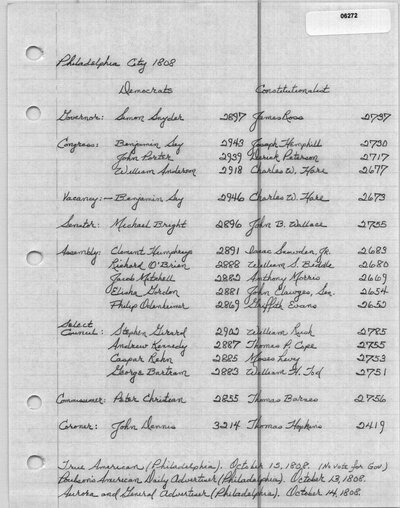 06272
Philadelphia City 1808
Democrats Constitutionalist
Governor: Simon Snyder 2897 James Ross 2737
Congress: Benjamin Say 2943 Joseph Hemphill 2730
John Porter 2939 Derick Peterson 2717
William Anderson 2918 Charles W. Hare 2677
Vacancy:— Benjamin Say 2946 Charles W. Hare 2673
Senator: Michael Bright 2896 John B. Wallace 2735
Assembly: Clement Humphreys 2891 Isaac Snowden, Jr. 2683
Richard O'Brian 2888 William S. Biddle 2680
Jacob Mitchell 2882 Anthony Morris 2669
Elisha Gordon 2881 John Clawges, Sen. 2654
Philip Odenheimer 2869 Griffith Evans 2650
Select
Council: Stephen Girard 2902 William Rush 2785
Andrew Kennedy 2887 Thomas P. Cope 2755
Caspar Rehn 2885 Moses Levy 2753
George Bartram 2883 William H. Tod 2751
Commissioner: Peter Christian 2855 Thomas Barnes 2756
Coroner: John Dennis 3214 Thomas Hopkins 2419
True American (Philadelphia). October 13, 1808. (No vote for Gov.)
Poulson's American Daily Advertiser (Philadelphia). October 13, 1808.
Aurora and General Advertiser (Philadelphia). October 14, 1808.